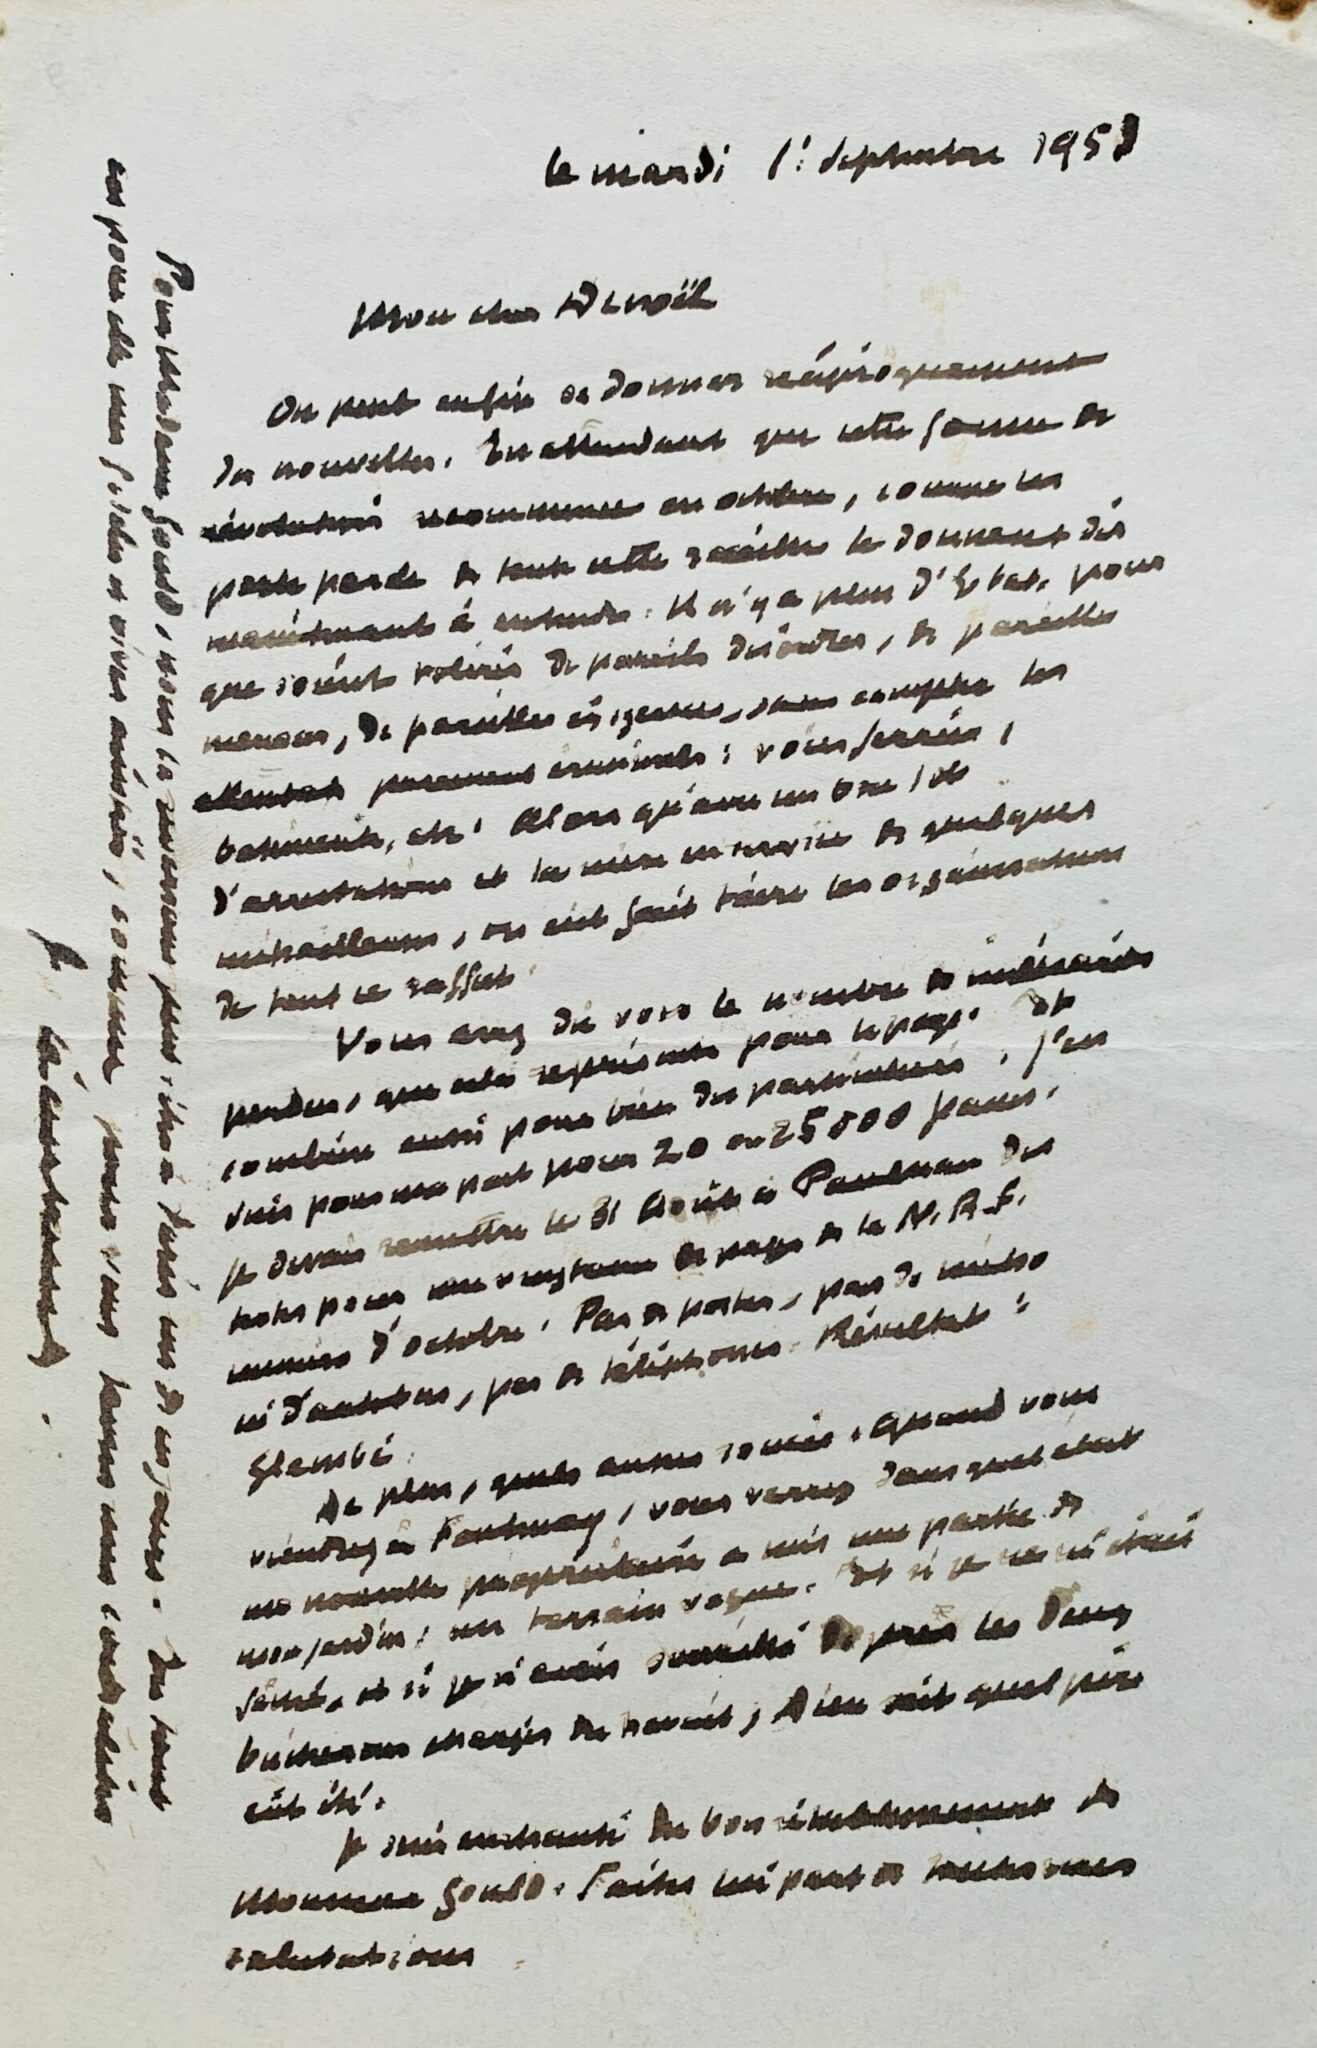 le mardi 1: septembre 1953
Mon cher Denoël
On peut enfin se donner réciproquement
des nouvelles. En attendant que cette
recommence en octobre, comme les
de toute cette le donnent dès
maintenant à entendre. Il n'y a plus d'Etat, pour
que soient tolérés de pareils désordres, de pareilles
menaces, de pareilles exigences, sans compter les
attentats purement criminels : voies ferrées,
batiments, etc. Alors qu'avec un bon lot
d'arrestations et la mise en service de quelques
mitrailleuses, on eût fait taire les organisateurs
de tout ce
Vous avez dû voir le nombre de milliards
perdus, que cela représente pour le pays. Et
combien aussi pour bien des particuliers. J'en
suis pour ma part pour 20 ou 25 000 francs.
Je devais remettre le 31 Août à Paulhan des
textes pour une vingtaine de pages de la N.R.F.
numéro d'octobre. Pas de postes, pas de métro
ni d'autobus, pas de téléphones. Résultat :
flambé.
De plus, quels autres soucis. Quand vous
viendrez à Fontenay, vous verrez dans quel état
ma nouvelle propriétaire a mis une partie de
mon jardin : un terrain vague. Et si je ne m'étais
fâché, et si je n'avais surveillé de près les deux
bûcherons chargés du travail, Dieu sait quel pire
eût été.
Je suis enchanté du bon de
Monsieur Gould. Faites lui part de toutes mes
salutations
Pour Madame Gould, nous la reverrons peut-être à Paris un de ces jours. En tout
cas pour elle mes fidèles et vives amitiés, comme pour vous toutes mes cordialités
P. Léautaud.